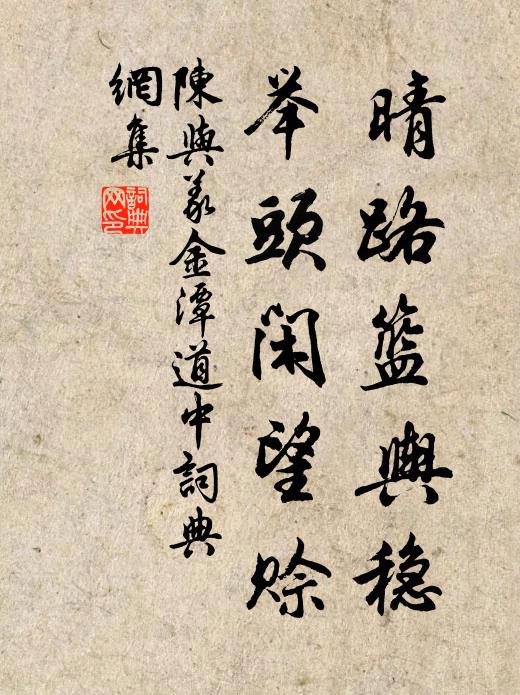 晴路籃輿穩
举頭閑望賒
陳與義金潭道中詞典
網集
詞典網印